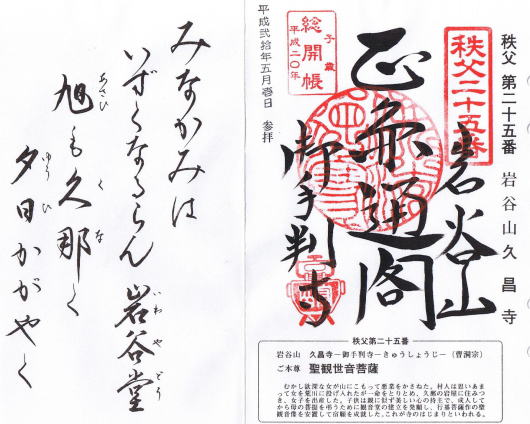 秩父 第二十五番 岩谷山久昌寺
秩父二十五番
岩谷山
通閣
御手判寺
子歳
総開帳
平成二〇年
平成弐拾年五月壱日 参拝
秩父第二十五番
岩谷山 久昌寺―御手判寺―きゅうしょうじ―(曹洞宗)
ご本尊 聖観世音菩薩
むかし欲深な女が山にこもって悪業をかさねた。村人は思いあま
って女を荒川に投げ入れたが一命をとりとめ、久那の岩屋に住みつ
き、女子を出産した。子供は親に似ず美しい心の持主で、成人して
から母の菩提を弔うために観音堂の建立を発願し、行基菩薩作の聖
観音像を安置して宿願を成就した。これが寺のはじまりといわれる。
みなかみは
いずくなるらん 岩谷堂
いわやどう
旭も久那く
あさひ くな
夕日かがやく
ゆうひ